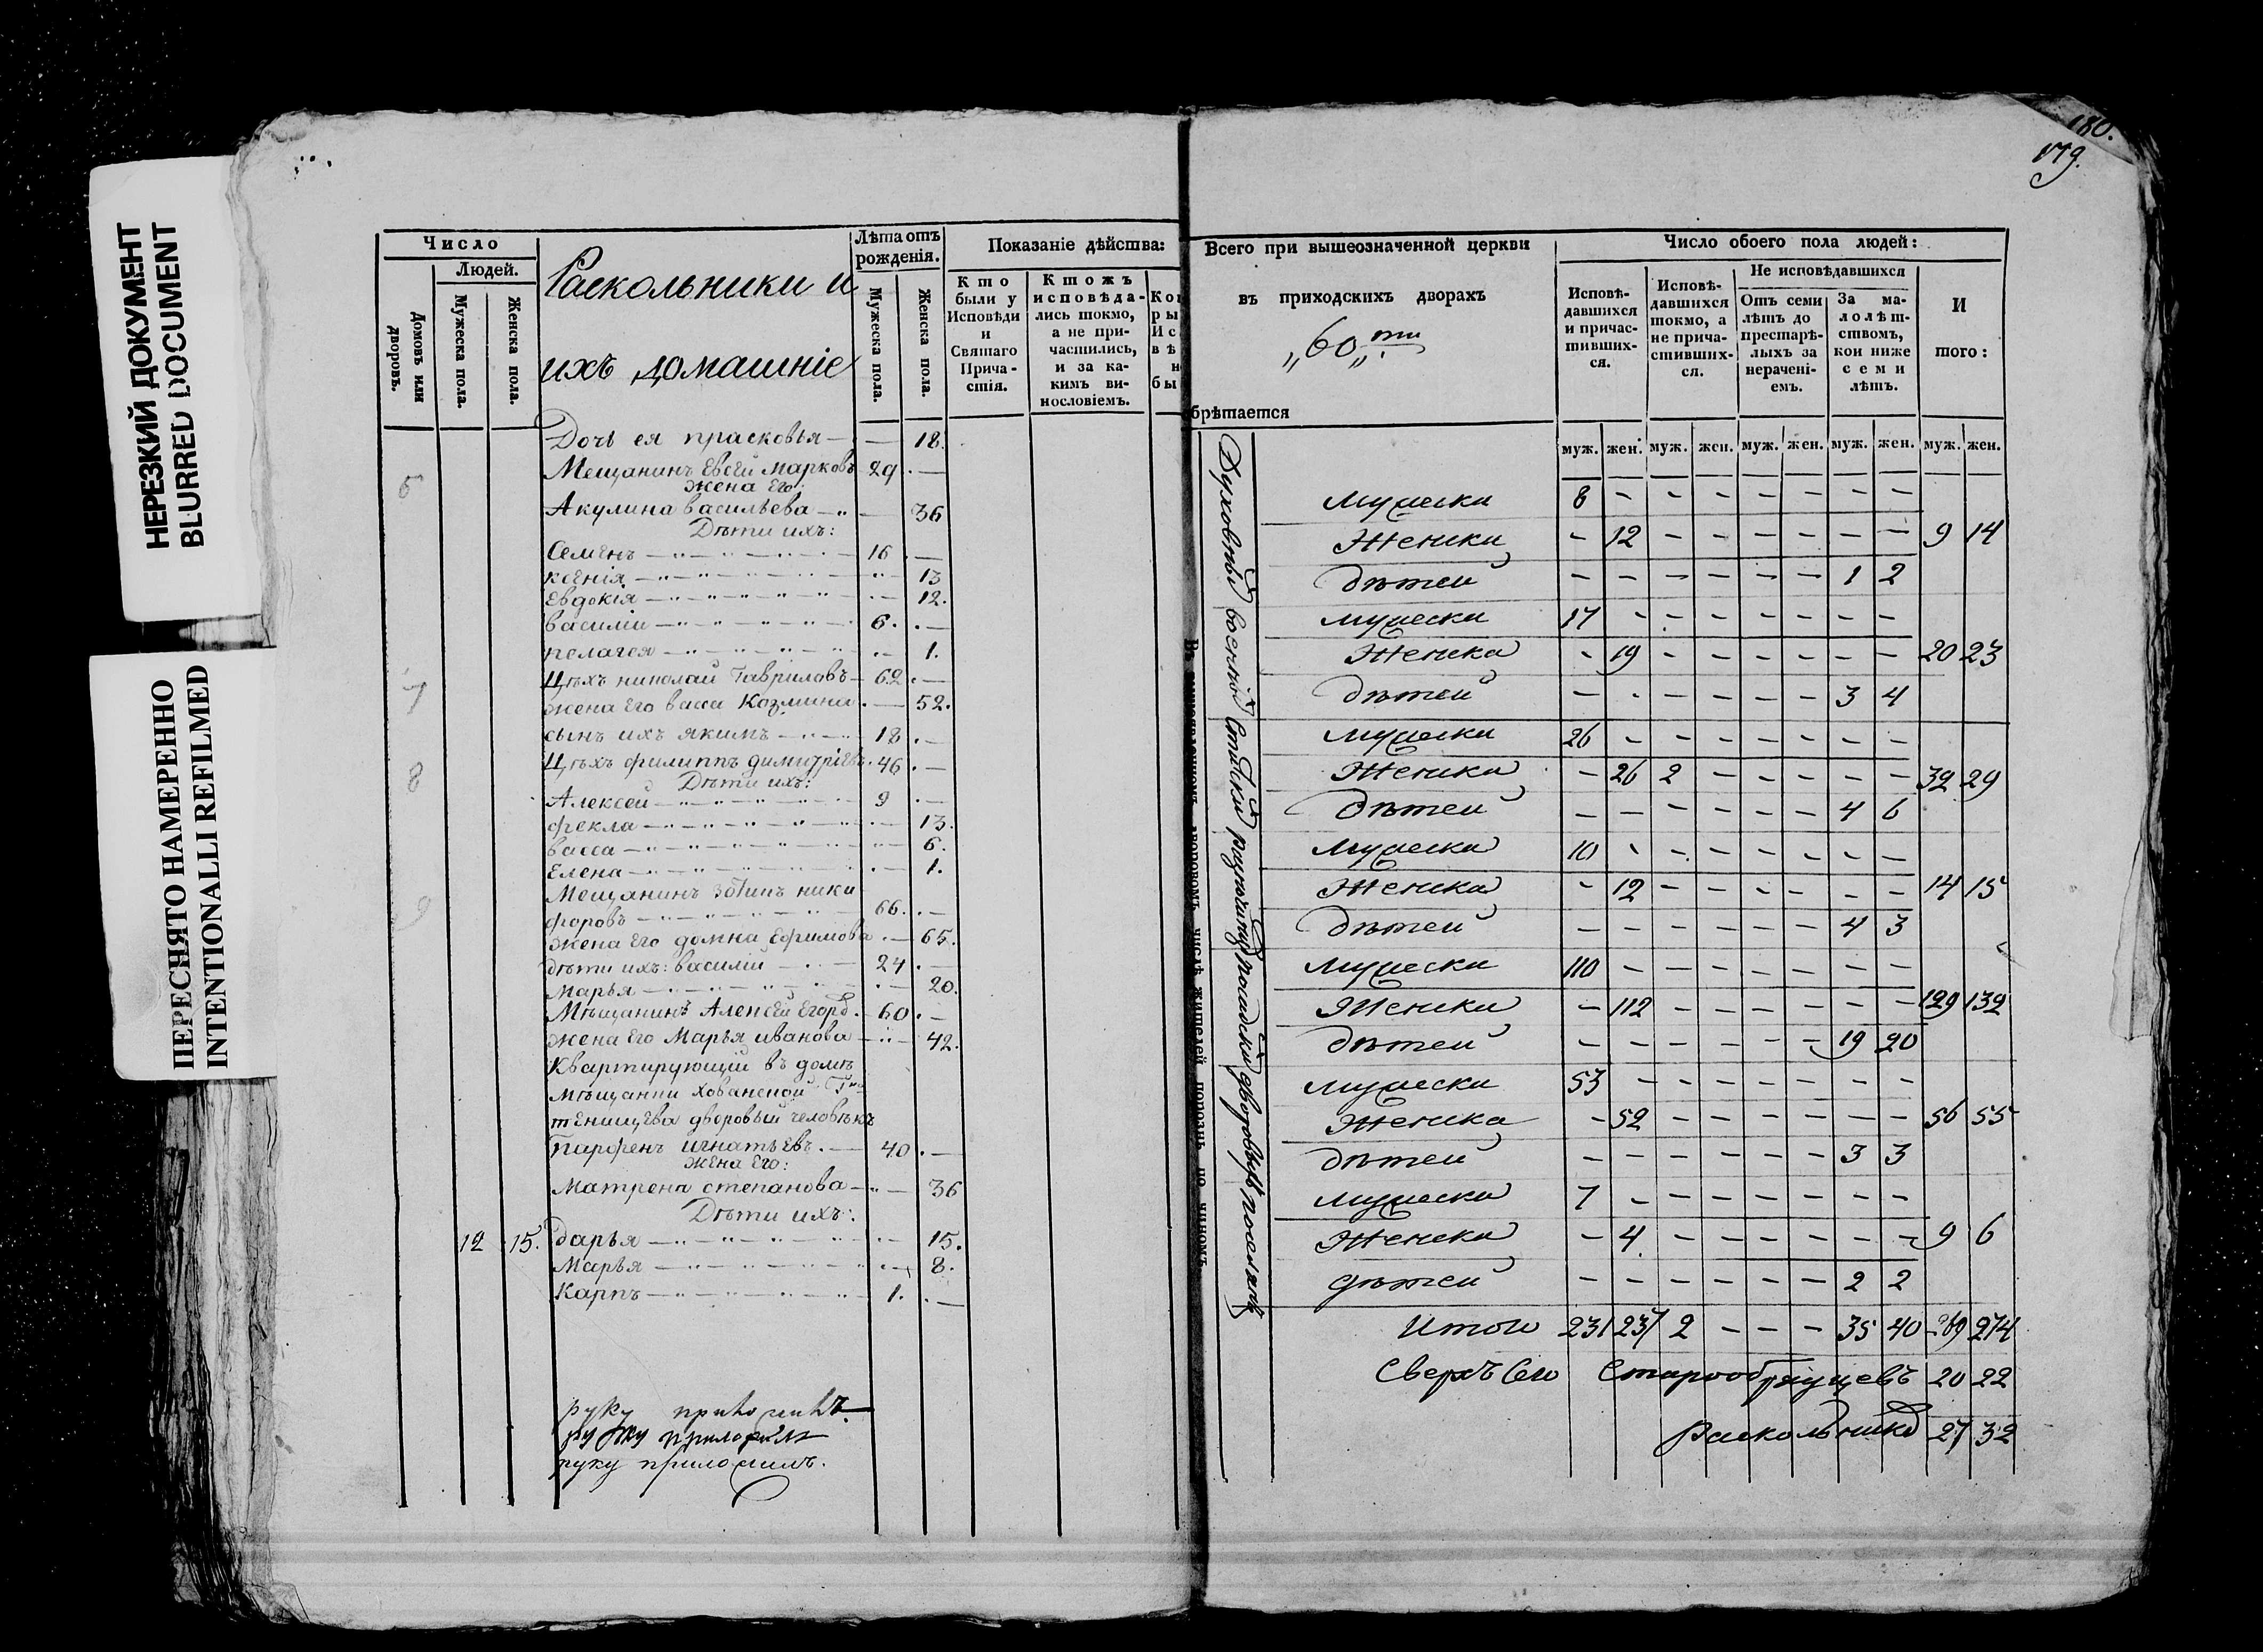 НЕРЕЗКИЙ ДОКУМЕНТ
BLURRED DOCUMENT
ПЕРЕСНЯТО НАМЕРЕННО
INTENTIONALLI REFILMED
180.
179.
Число
Людей.
Домовъ или дворовъ.
Мужеска пола.
Женска пола.
Раскольники и
ихъ домашніе
Лѣта отъ рожденія.
Мужеска пола.
Женска пола.
Показаніе дѣйства:
Кто были у Исповѣди и Святаго Причастія.
Ктожъ исповѣдались токмо, а не причастились, и за какимъ винословіемъ.
Дочь ея прасковья — — 18.
6 Мещанинъ Евсей Марковъ 29. —
жена его
Акулина васильева — 36
Дѣти ихъ:
Семенъ 16 . —
ксенія — 13
Евдокія — 12.
василій 6. . —
пелагея — 1.
7 Цѣхъ николай Гавриловъ 62. —
жена его васса Козмина . — 52.
сынъ ихъ якимъ 18 . —
8 Цѣхъ филиппъ димитріевъ 46 . —
Дѣти ихъ:
Алексей 9 . —
фекла — 13.
васса — 6.
Елена — 1.
9 Мещанинъ Зотикъ ники
форовъ 66. . —
жена его домна Ефимова . — 65.
дѣти ихъ: василій 24 . —
Марья — 20.
Мѣщанинъ Алексей Егоров. 60 . —
жена его Марья иванова — 42.
Квартирующій въ домѣ
мѣщанки хованской
тенищева дворовый человѣкъ
Парфенъ игнатьевъ. — 40 . —
жена его:
Матрена степанова — 36
Дѣти ихъ:
12 15. Дарья — 15.
Марья — 8.
Карпъ 1. . —
руку приложилъ.
руку приложилъ
руку приложилъ.
Всего при вышеозначенной церкви
въ приходскихъ дворахъ
„60„ ти
брѣтается
Число обоего пола людей:
Исповѣдавшихся и причастившихся.
Исповѣдавшихся токмо, а не причастившихся.
Не исповѣдавшихся
Отъ семи лѣтъ до престарѣлыхъ за нерачѣніемъ.
За малолѣтствомъ, кои ниже семи лѣтъ.
И того:
муж. жен. муж. жен. муж. жен. муж. жен. муж. жен.
Духовныхъ военныхъ Статскихъ разночинц посадскихъ дворовыхъ поселянъ
Мужеска 8 — — — — — — —
Женска — 12 — — — — — — 9 14
дѣтей — — — — — — 1 2
Мужеска 17 — — — — — — —
Женска — 19 — — — — — — 20 23
дѣтей — — — — — — 3 4
Мужеска 26 — — — — — — —
Женска — 26 2 — — — — — 32 29
Дѣтей — — — — — — 4 6
Мужеска 10 — — — — — — —
Женска — 12 — — — — — — 14 15
дѣтей — — — — — — 4 3
Мужеска 110 — — — — — — —
Женска — 112 — — — — — — 129 132
дѣтей — — — — — — 19 20
Мужеска 53 — — — — — — —
Женска — 52 — — — — — — 56 55
дѣтей — — — — — — 3 3
Мужеска 7 — — — — — — —
Женска — 4 — — — — — — 9 6
дѣтей — — — — — — 2 2
Итого 231 237 2 — — — 35 40 269 274
Сверхъ сего Старообрядцевъ 20 22
Раскольников 27 32